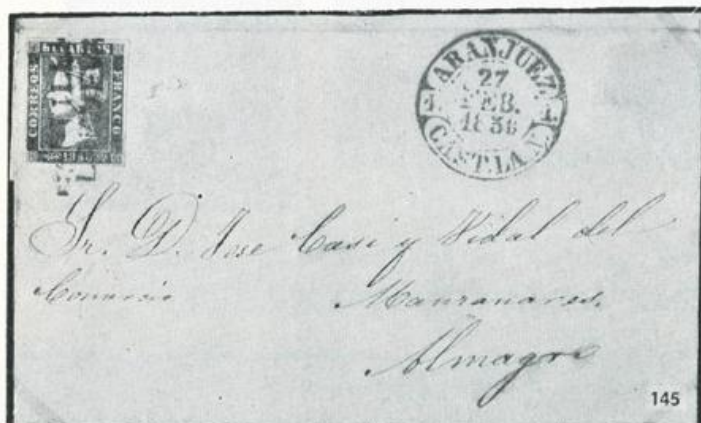 CORREOS
FRANCO
ARANJUEZ.
27
FEB.
1856
CAST. LA N.
Sr. D. Jose Casi y Vidal del
Comercio Manzanares,
Almagro
145